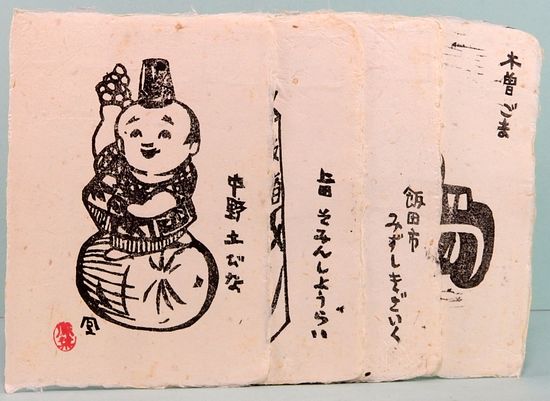 中野土びな
上田 そみんしようらい
飯田市
みずしきざいく
木曽ごま